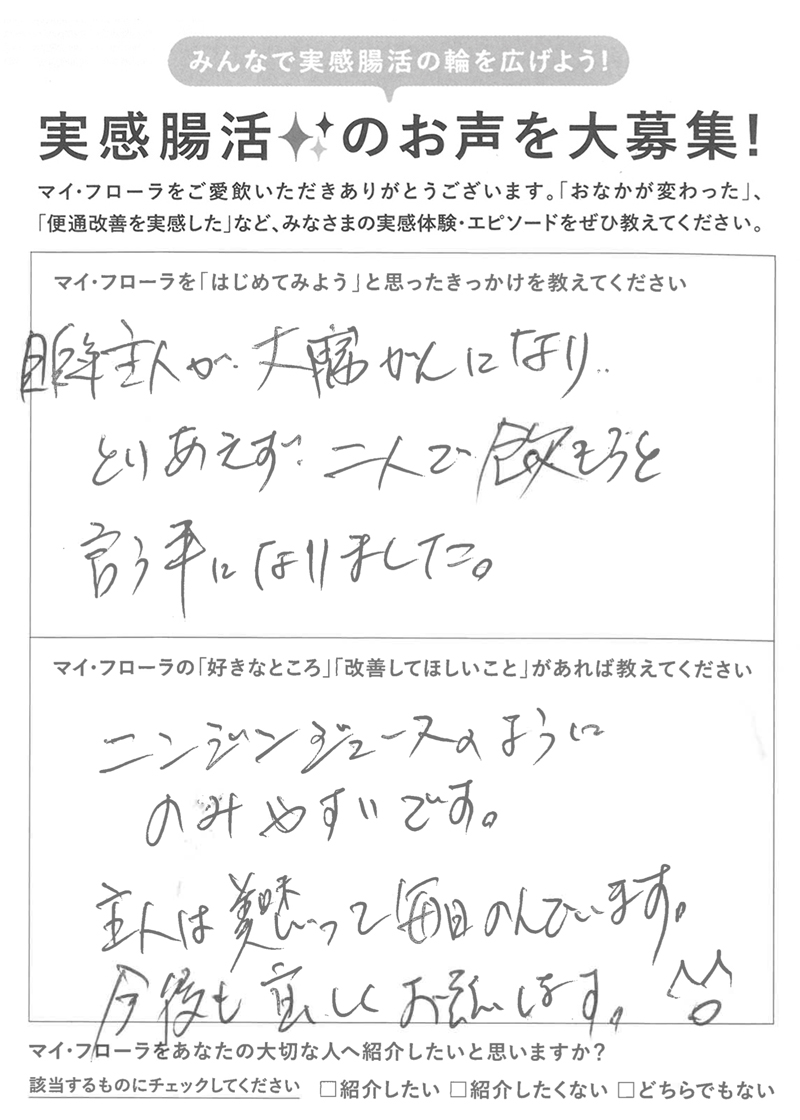 みんなで実感腸活の輪を広げよう!
実感腸活のお声を大募集!
マイ・フローラをご愛飲いただきありがとうございます。「おなかが変わった」、
「便通改善を実感した」など、みなさまの実感体験・エピソードをぜひ教えてください。
マイ・フローラを「はじめてみよう」と思ったきっかけを教えてください
昨年主人が、大腸がんになり、
とりあえず、二人で飲もうと
言う事になりました。
マイ・フローラの「好きなところ」「改善してほしいこと」があれば教えてください
ニンジンジュースのように
のみやすいです。
主人は美味いって毎日のんでいます。
今後も宜しくお願います。^^
マイ・フローラをあなたの大切な人へ紹介したいと思いますか?
該当するものにチェックしてください □紹介したい □紹介したくない □どちらでもない